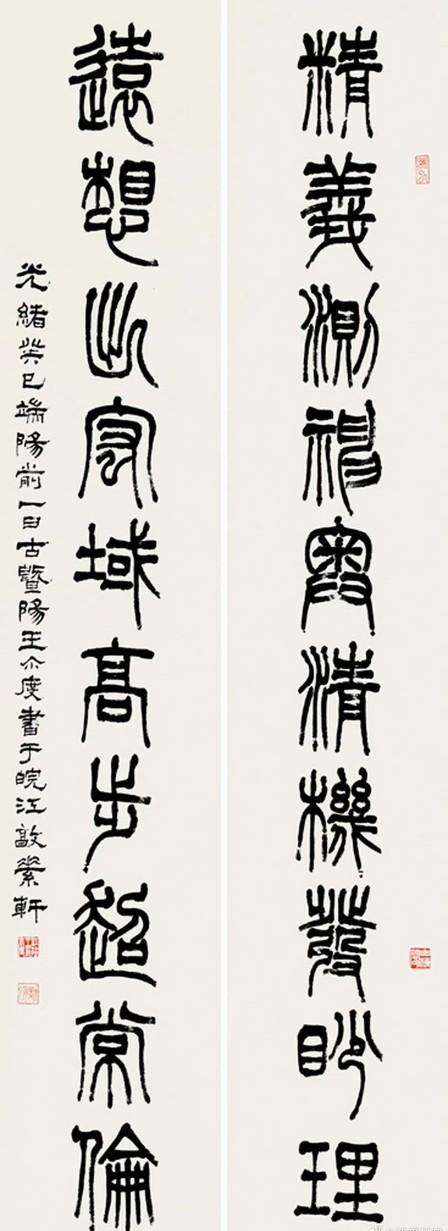 精義測神奧清機發眇理
遠想出宏域高步超常倫
光緒癸巳端陽前一日古暨陽王尒度書于皖江軒